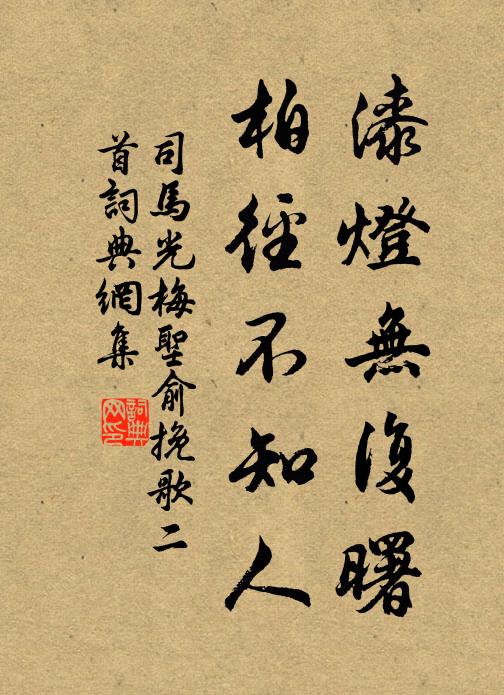 漆燈無復曙
柏徑不知人
司馬光梅聖俞挽歌二
首詞典網集
詞典
网印